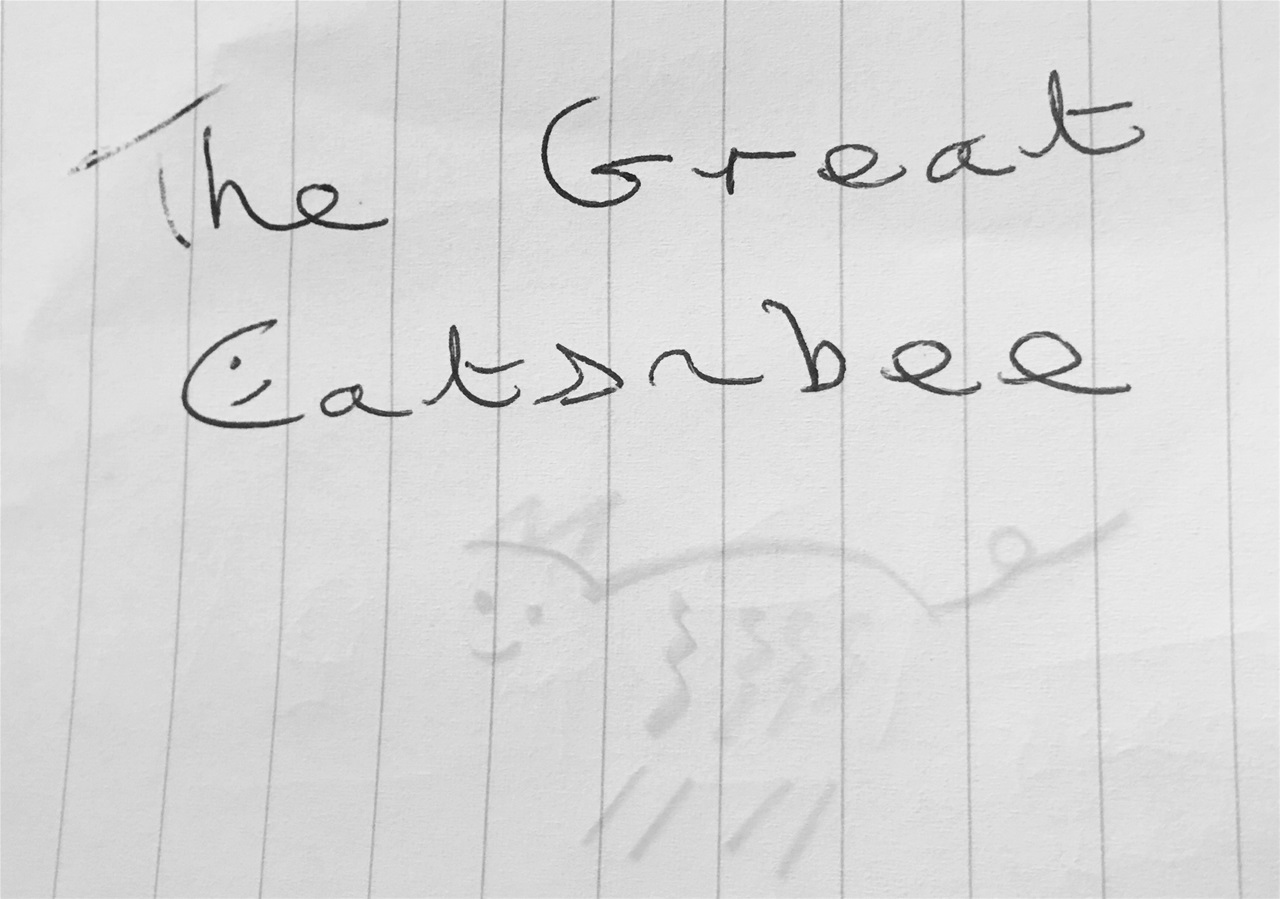 The Great
Catsnbee